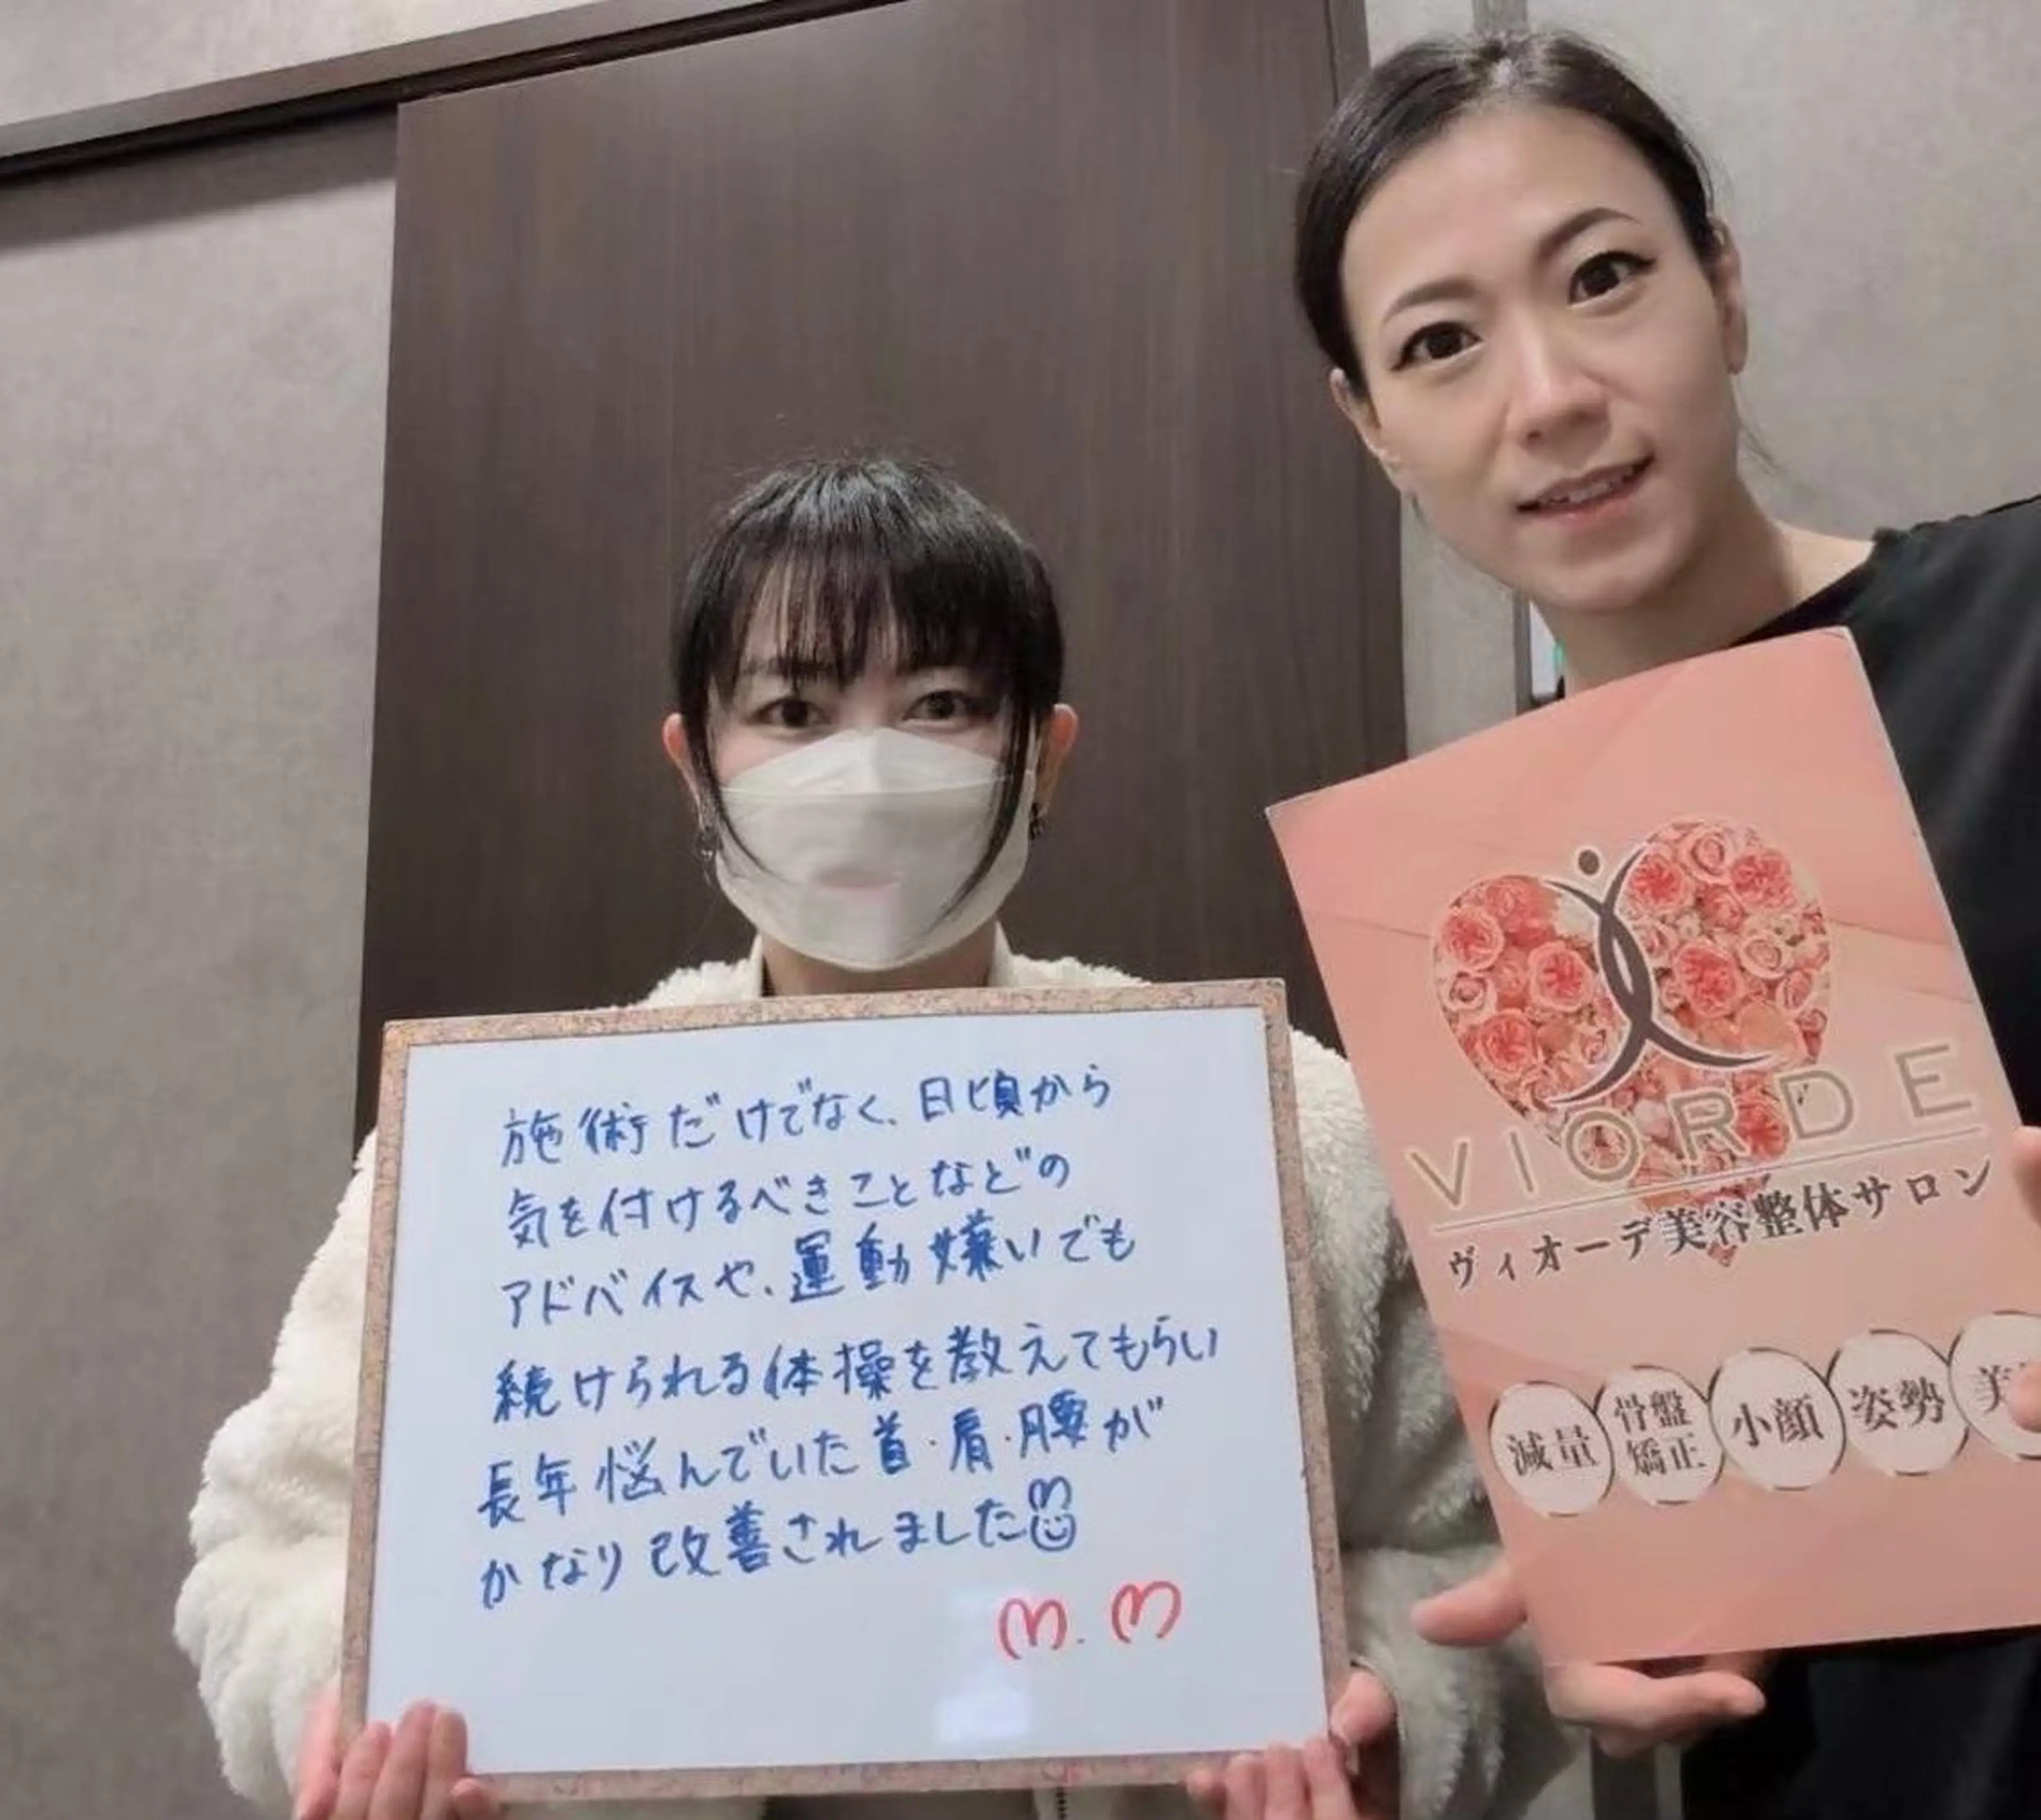 施術だけでなく、日頃から
気を付けるべきことなどの
アドバイスや、運動嫌いでも
続けられる体操を教えてもらい
長年悩んでいた首・肩・腰が
かなり改善されました
M.M
VIORDE
ヴィオーデ美容整体サロン
減量
骨盤
矯正
小顔
姿勢
美